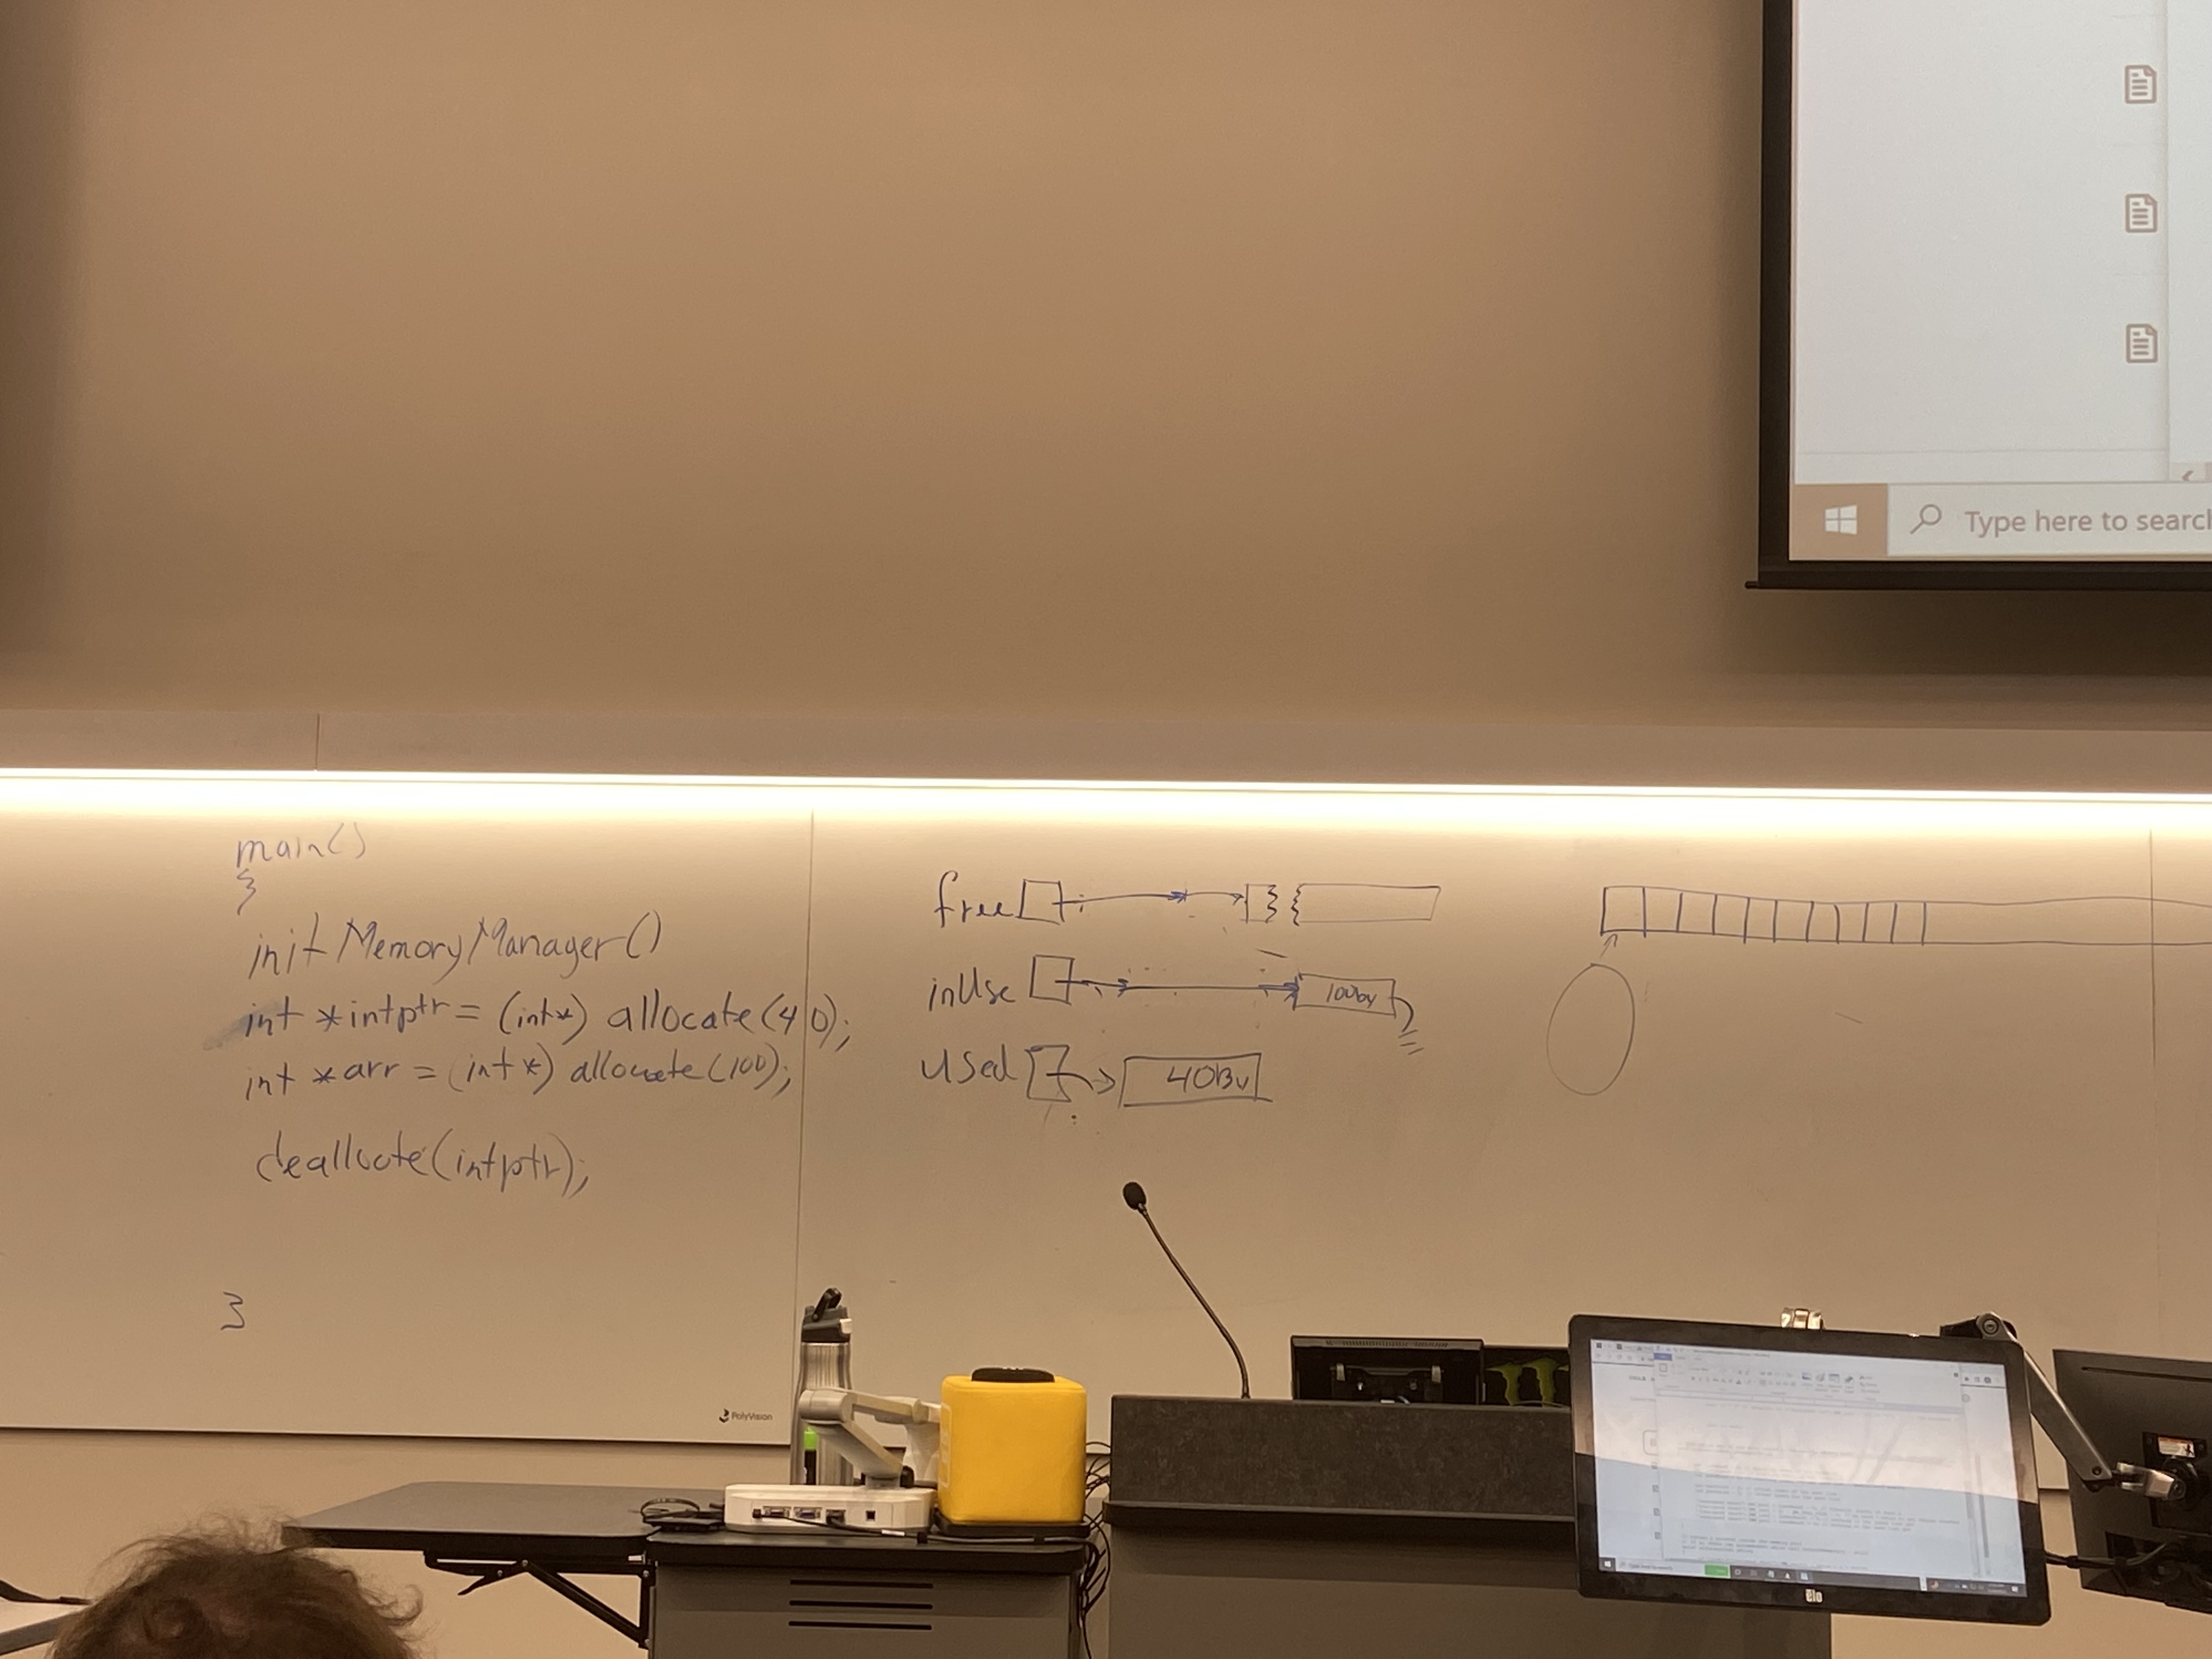 Type here to search
main()
{
initMemoryManager()
int *intptr = (int*) allocate(40);
int *arr = (int*) allocate(100);
deallocate(intptr);
}
free
inUse
100by
used
40By
PolyVision
elo